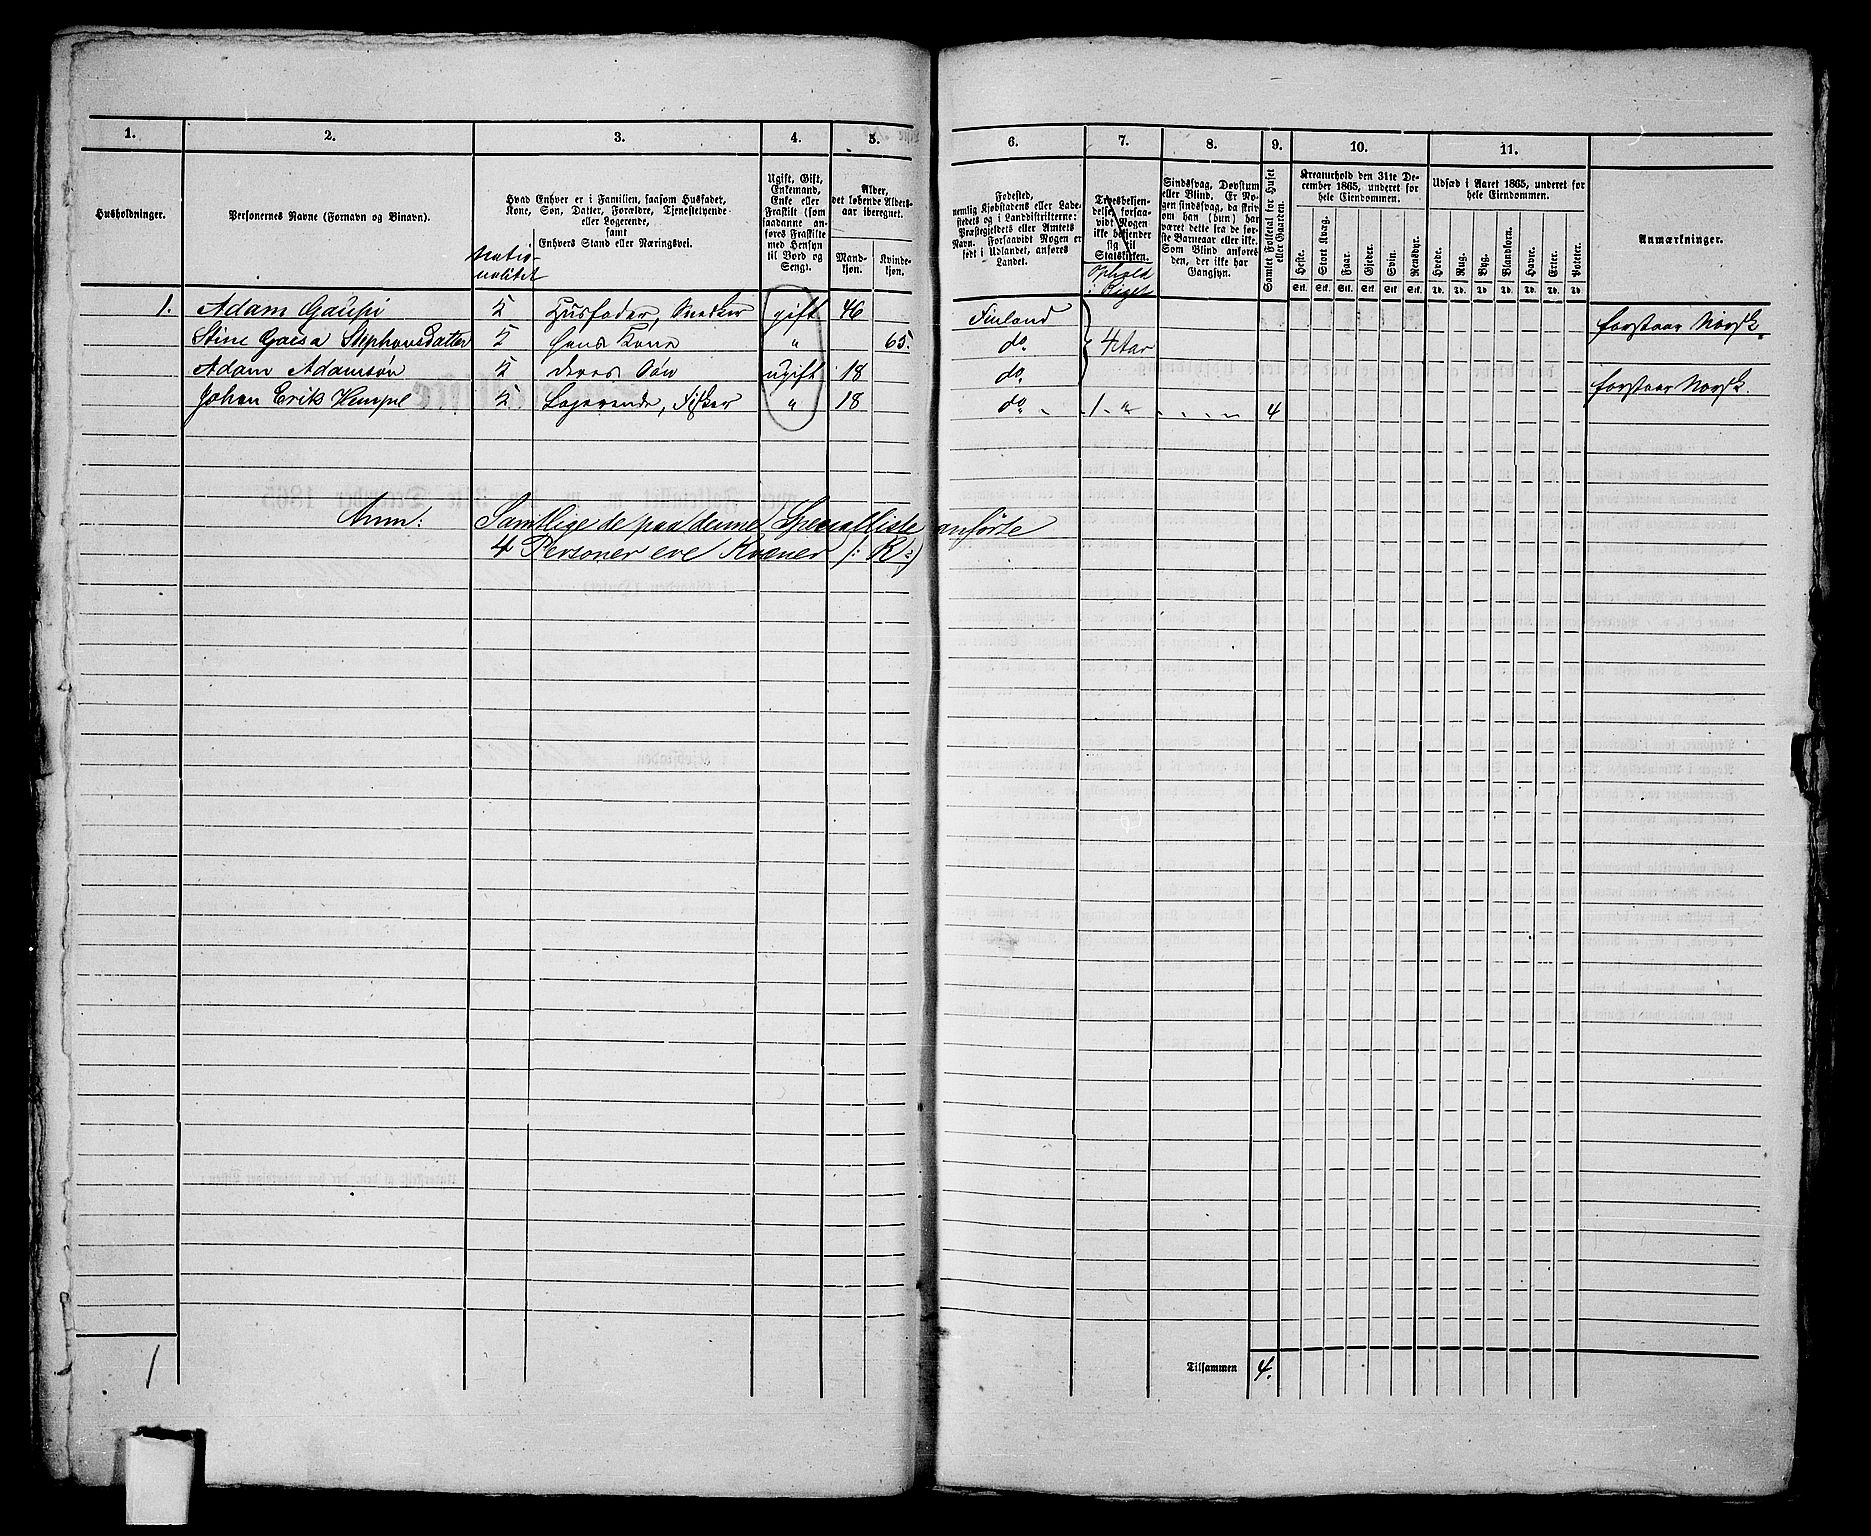 1.
2.
3.
4.
5.
Husholdninger.
Personernes Navne (Fornavn og Binavn).
Hvad Enhver er i Familien, saasom Husfader,
Kone, Søn, Datter, Forældre, Tjenestetyende
eller Logerende,
samt
Enhvers Stand eller Næringsvei.
Natio-
nalitet
Ugift, Gift,
Enkemand,
Enke eller
Fraskilt (som
saadanne an-
føres Fraskilte
med Hensyn
til Bord og
Seng).
Alder,
det løbende Alders-
aar iberegnet.
Mand-
kjøn.
Kvinde-
kjøn.
6.
7.
8.
9.
10.
11.
Fødested,
nemlig Kjøbstadens eller Lade-
stedets og i Landdistrikterne:
Præstegjeldets eller Amtets
Navn. Forsaavidt Nogen er
født i Udlandet, anføres
Landet.
Troesbekjen-
delse forsaa-
vidt Nogen
ikke bekjender
sig til
Statskirken.
Ophold
i Riget
Sindssvag, Døvstum
eller Blind. Er No-
gen sindssvag, da skriv
om han (hun) har
været dette fra de før-
ste Barneaar eller ikke.
Som Blind anføres
den, der ikke har
Gangsyn.
Samlet Folketal for Huset
eller Gaarden.
Kreaturhold den 31te De-
cember 1865, underet for
hele Eiendommen.
Heste.
Stort Kvæg.
Faar.
Gjeder.
Svin.
Rensdyr.
Stk.
Stk.
Stk.
Stk.
Stk.
Stk.
Udsæd i Aaret 1865, underet for
hele Eiendommen.
Hvede.
Rug.
Byg.
Blandkorn.
Havre.
Erter.
Poteter.
Td.
Td.
Td.
Td.
Td.
Td.
Td.
Anmærkninger.
1. Adam Gaupi 2 Husfader, Snedker gift 46 Finland forstaar Norsk.
Stine Gaisa Stephansdatter 2 hans Kone " 65. do. 4 Aar
Adam Adamsøn 2 deres Søn ugift 18 do. forstaar Norsk.
Johan Erik Kempel 2 Logerende, Fisker " 18 do. 1 " 4
Anm: Samtlige de paa denne Specialliste anførte
4 Personer ere Kvæner (: K :)
1
Tilsammen 4.